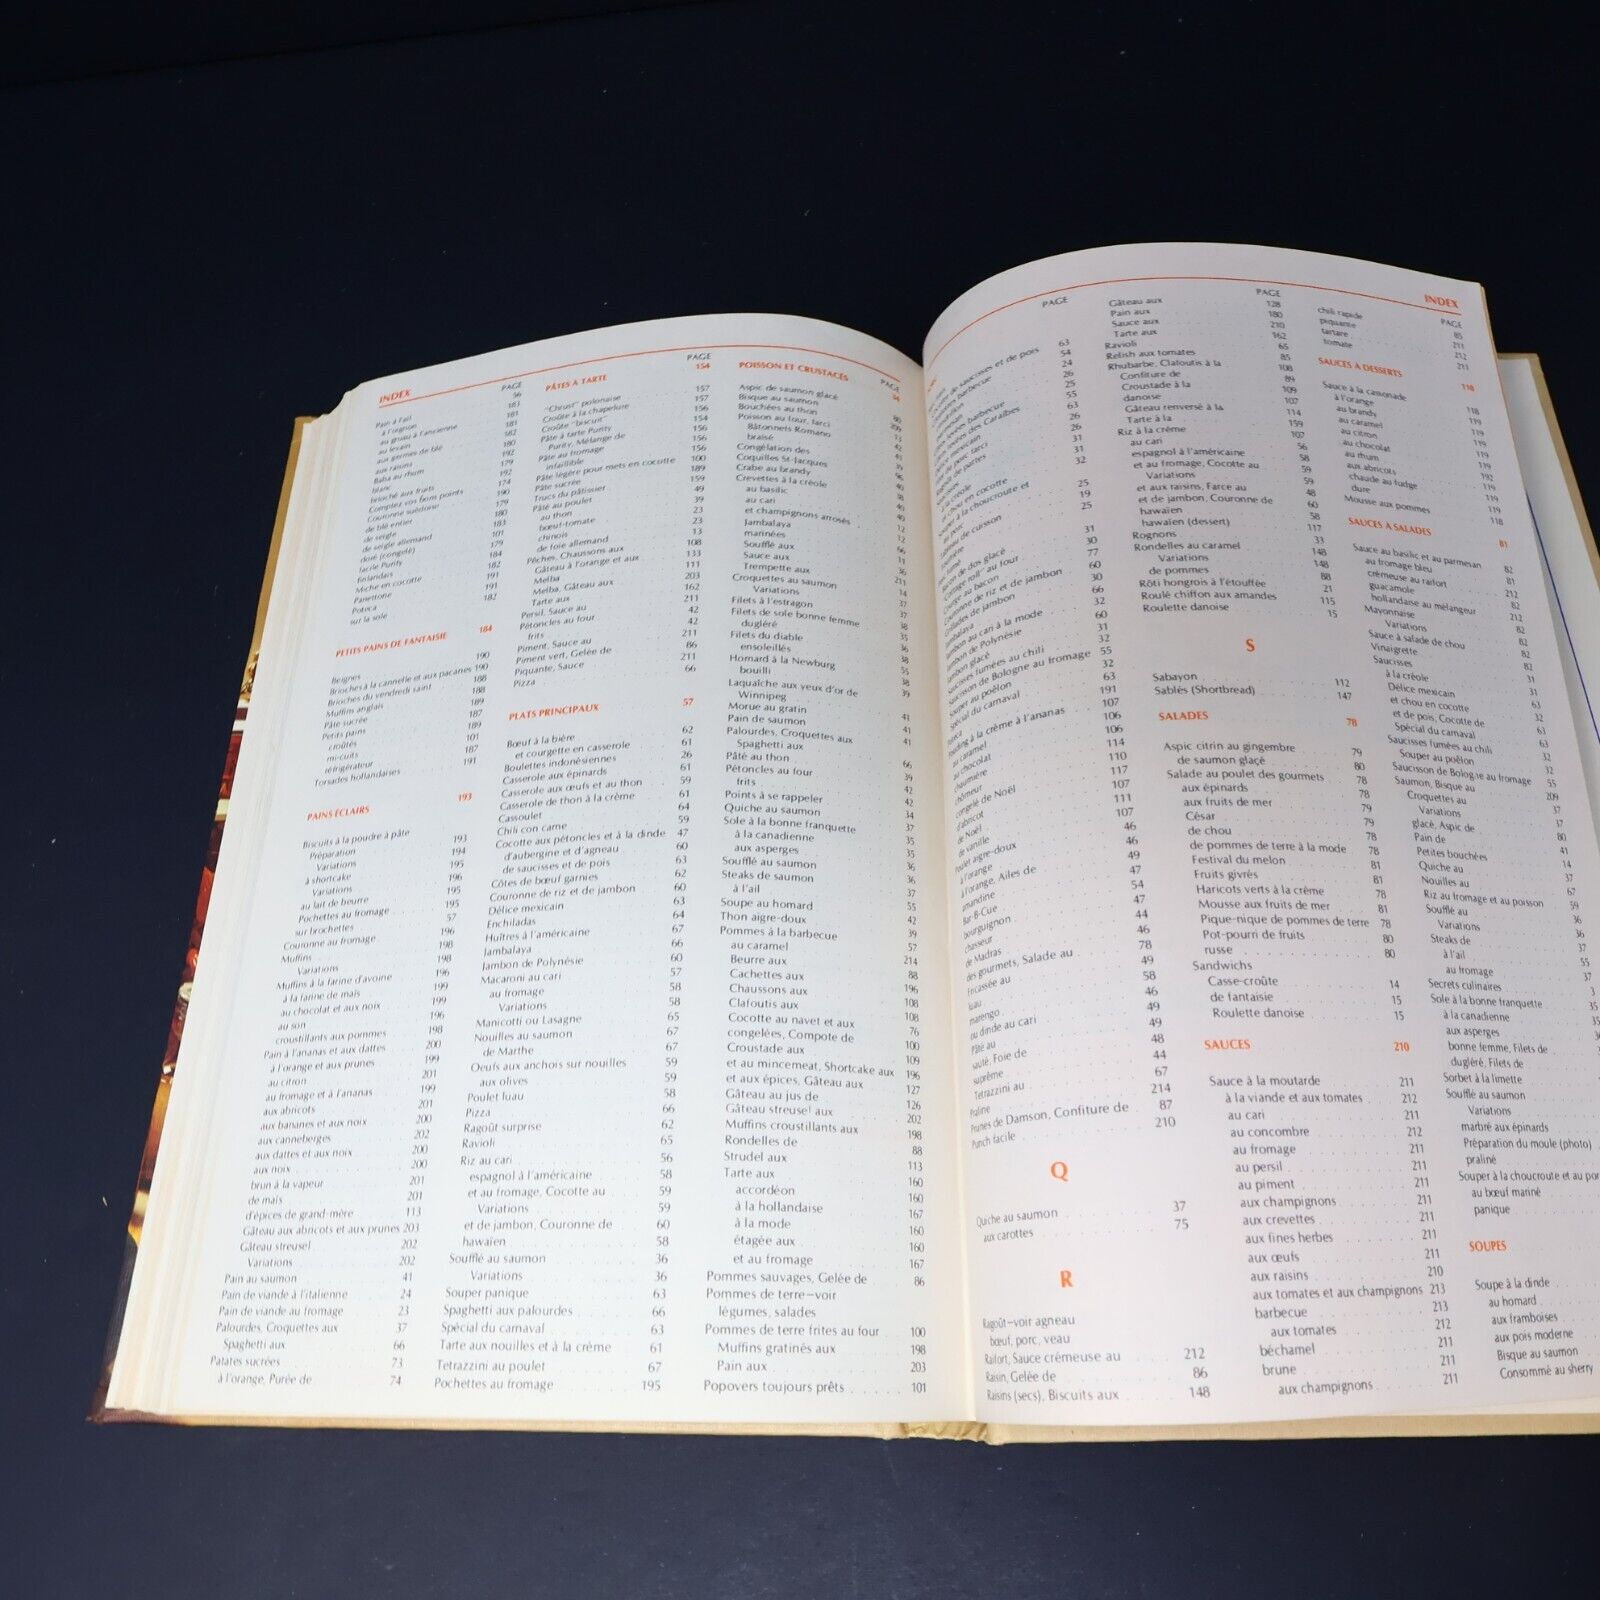 INDEX
PAGE
Pain à l'ail
à l'oignon
au gruau à l'ancienne
au levain
aux germes de blé
aux raisins
Baba au rhum
blanc
brioché aux fruits
Comptez vos bons points
Couronne suédoise
de blé entier
de seigle
de seigle allemand
doré (congelé)
facile Purity
finlandais
Miche en cocotte
Panettone
Poteca
sur la sole
PETITS PAINS DE FANTAISIE 184
Beignes 190
Brioches à la cannelle et aux pacanes 190
Brioches du vendredi saint 188
Muffins anglais 188
Pâte sucrée 189
Petits pains 187
croûtés 189
mi-cuits 101
réfrigérateur 187
Torsades hollandaises 191
PAINS ÉCLAIRS 193
Biscuits à la poudre à pâte 193
Préparation 194
Variations 195
à shortcake 196
Variations 195
au lait de beurre 195
Pochettes au fromage
sur brochettes 57
Couronne au fromage 196
Muffins 198
Variations 198
Muffins à la farine d'avoine 196
à la farine de maïs 199
au chocolat et aux noix 199
au son 196
croustillants aux pommes 198
Pain à l'ananas et aux dattes 200
à l'orange et aux prunes 199
au citron 201
au fromage et à l'ananas 199
aux abricots 201
aux bananes et aux noix 200
aux canneberges 202
aux dattes et aux noix 200
aux noix 200
brun à la vapeur 201
de maïs 201
d'épices de grand-mère 113
Gâteau aux abricots et aux prunes 203
Gâteau streusel 202
Variations 202
Pain au saumon 41
Pain de viande à l'italienne 24
Pain de viande au fromage 23
Palourdes, Croquettes aux 37
Spaghetti aux 66
Patates sucrées 73
à l'orange, Purée de 74
PAGE
PÂTES A TARTE 154
"Chrust" polonaise 157
Croûte à la chapelure 157
Croûte "biscuit" 156
Pâte à tarte Purity 154
Purity, Mélange de 156
Pâte au fromage 156
infaillible 156
Pâte légère pour mets en cocotte 100
Pâte sucrée 189
Trucs du pâtissier 159
Pâté au poulet 49
au thon 39
bœuf-tomate 23
chinois 23
de foie allemand 13
Pêches, Chaussons aux 108
Gâteau à l'orange et aux 133
Melba 111
Melba, Gâteau aux 203
Tarte aux 162
Persil, Sauce au 211
Pétoncles au four 42
frits 42
Piment, Sauce au 211
Piment vert, Gelée de 86
Piquante, Sauce 211
Pizza 66
PLATS PRINCIPAUX 57
Bœuf à la bière 62
et courgette en casserole 61
Boulettes indonésiennes 26
Casserole aux épinards 61
Casserole aux œufs et au thon 59
Casserole de thon à la crème 61
Cassoulet 64
Chili con carne 59
Cocotte aux pétoncles et à la dinde 47
d'aubergine et d'agneau 60
de saucisses et de pois 63
Côtes de bœuf garnies 62
Couronne de riz et de jambon 60
Délice mexicain 63
Enchiladas 64
Huîtres à l'américaine 67
Jambalaya 66
Jambon de Polynésie 60
Macaroni au cari 57
au fromage 58
Variations 58
Manicotti ou Lasagne 65
Nouilles au saumon 67
de Marthe 67
Oeufs aux anchois sur nouilles 59
aux olives 59
Poulet luau 58
Pizza 66
Ragoût surprise 62
Ravioli 65
Riz au cari 56
espagnol à l'américaine 58
et au fromage, Cocotte au 59
Variations 59
et de jambon, Couronne de 60
hawaïen 58
Soufflé au saumon 36
Variations 36
Souper panique 63
Spaghetti aux palourdes 66
Spécial du carnaval 63
Tarte aux nouilles et à la crème 61
Tetrazzini au poulet 67
Pochettes au fromage 195
PAGE
POISSON ET CRUSTACÉS 34
Aspic de saumon glacé 80
Bisque au saumon 209
Bouchées au thon 13
Poisson au four, farci
Bâtonnets Romano
braisé
Congélation des
Coquilles St-Jacques
Crabe au brandy
Crevettes à la créole
au basilic
au cari
et champignons arrosés
Jambalaya
marinées
Soufflé aux
Sauce aux
Trempette aux
Croquettes au saumon
Variations
Filets à l'estragon
Filets de sole bonne femme
dugléré
Filets du diable
ensoleillés
Homard à la Newburg
bouilli
Laquaîche aux yeux d'or de
Winnipeg
Morue au gratin 41
Pain de saumon 41
Palourdes, Croquettes aux
Spaghetti aux 66
Pâté au thon 39
Pétoncles au four 42
frits 42
Points à se rappeler 34
Quiche au saumon 37
Sole à la bonne franquette 35
à la canadienne 35
aux asperges 36
Soufflé au saumon 36
Steaks de saumon 37
à l'ail 37
Soupe au homard 55
Thon aigre-doux 42
Pommes à la barbecue 39
au caramel 57
Beurre aux 214
Cachettes aux 88
Chaussons aux 196
Clafoutis aux 108
Cocotte au navet et aux 108
congelées, Compote de 76
Croustade aux 100
et au mincemeat, Shortcake aux 109
et aux épices, Gâteau aux 196
Gâteau au jus de 127
Gâteau streusel aux 126
Muffins croustillants aux 202
Rondelles de 198
Strudel aux 88
Tarte aux 113
accordéon 160
à la hollandaise 160
à la mode 167
étagée aux 160
et au fromage 160
167
Pommes sauvages, Gelée de 86
Pommes de terre—voir
légumes, salades
Pommes de terre frites au four 100
Muffins gratinés aux 198
Pain aux 203
Popovers toujours prêts 101
PAGE
Cocotte de saucisses et de pois 63
54
24
26
25
55
26
63
26
31
31
32
25
19
25
31
30
77
Couronne de riz et de jambon 60
Grillades de jambon 30
Jambalaya 66
Jambon au cari à la mode 32
Jambon de Polynésie 31
Jambon glacé 32
Saucisses fumées au chili 55
Saucisson de Bologne au fromage 32
Souper au poêlon 63
Spécial du carnaval 191
Poteca 107
Pouding à la crème à l'ananas 106
au caramel 106
au chocolat 114
chaumière 110
chômeur 117
congelé de Noël 107
d'abricot 111
de Noël 107
de vanille 46
Poulet aigre-doux 46
à l'orange 49
à l'orange, Ailes de 47
amandine 54
Bar-B-Cue 47
bourguignon 44
chasseur 46
de Madras 78
des gourmets, Salade au 49
Fricassée au 58
luau 46
marengo 49
ou dinde au cari 49
Pâté au 48
sauté, Foie de 44
suprême 67
Tetrazzini au 214
Praline
Prunes de Damson, Confiture de 87
Punch facile 210
Q
Quiche au saumon 37
aux carottes 75
R
Ragoût—voir agneau
bœuf, porc, veau
Raifort, Sauce crémeuse au 212
Raisin, Gelée de 86
Raisins (secs), Biscuits aux 148
PAGE
Gâteau aux 128
Pain aux 180
Sauce aux 210
Tarte aux 162
Ravioli 65
Relish aux tomates 85
Rhubarbe, Clafoutis à la 108
Confiture de 89
Croustade à la 109
danoise 107
Gâteau renversé à la 114
Tarte à la 159
Riz à la crème 107
au cari 56
espagnol à l'américaine 58
et au fromage, Cocotte au 59
Variations 59
et aux raisins, Farce au 48
et de jambon, Couronne de 60
hawaïen 58
hawaïen (dessert) 117
Rognons 33
Rondelles au caramel 148
Variations 148
de pommes 88
Rôti hongrois à l'étouffée 21
Roulé chiffon aux amandes 115
Roulette danoise 15
S
Sabayon 112
Sablés (Shortbread) 147
SALADES 78
Aspic citrin au gingembre 79
de saumon glacé 80
Salade au poulet des gourmets 78
aux épinards 78
aux fruits de mer 79
César 79
de chou 78
de pommes de terre à la mode 78
Festival du melon 81
Fruits givrés 81
Haricots verts à la crème 78
Mousse aux fruits de mer 81
Pique-nique de pommes de terre 78
Pot-pourri de fruits 80
russe 80
Sandwichs
Casse-croûte 14
de fantaisie 15
Roulette danoise 15
SAUCES 210
Sauce à la moutarde 211
à la viande et aux tomates 212
au cari 211
au concombre 212
au fromage 211
au persil 211
au piment 211
aux champignons 211
aux crevettes 211
aux fines herbes 211
aux œufs 211
aux raisins 210
aux tomates et aux champignons 213
barbecue 213
aux tomates 212
béchamel 211
brune 211
aux champignons 211
INDEX
PAGE
chili rapide 85
piquante 211
tartare 212
tomate 211
SAUCES A DESSERTS 118
Sauce à la cassonade 118
à l'orange 119
au brandy 119
au caramel 119
au citron 119
au chocolat 119
au rhum 119
aux abricots 192
chaude au fudge 119
dure 119
Mousse aux pommes 118
SAUCES A SALADES 81
Sauce au basilic et au parmesan 82
au fromage bleu 81
crémeuse au raifort 212
guacamole 82
hollandaise au mélangeur 212
Mayonnaise 82
Variations 82
Sauce à salade de chou 82
Vinaigrette 82
Saucisses
à la créole 31
Délice mexicain 63
et chou en cocotte 32
et de pois, Cocotte de 63
Spécial du carnaval 63
Saucisses fumées au chili 32
Souper au poêlon 32
Saucisson de Bologne au fromage 55
Saumon, Bisque au 209
Croquettes au 37
Variations 37
glacé, Aspic de 80
Pain de 41
Petites bouchées 14
Quiche au 37
Nouilles au 67
Riz au fromage et au poisson 59
Soufflé au 36
Variations 36
Steaks de 37
à l'ail 55
au fromage 37
Secrets culinaires 3
Sole à la bonne franquette 35
à la canadienne 35
aux asperges
bonne femme, Filets de
dugléré, Filets de
Sorbet à la limette
Soufflé au saumon
Variations
marbré aux épinards
Préparation du moule (photo)
praliné
Souper à la choucroute et au por
au bœuf mariné
panique
SOUPES
Soupe à la dinde
au homard
aux framboises
aux pois moderne
Bisque au saumon
Consommé au sherry